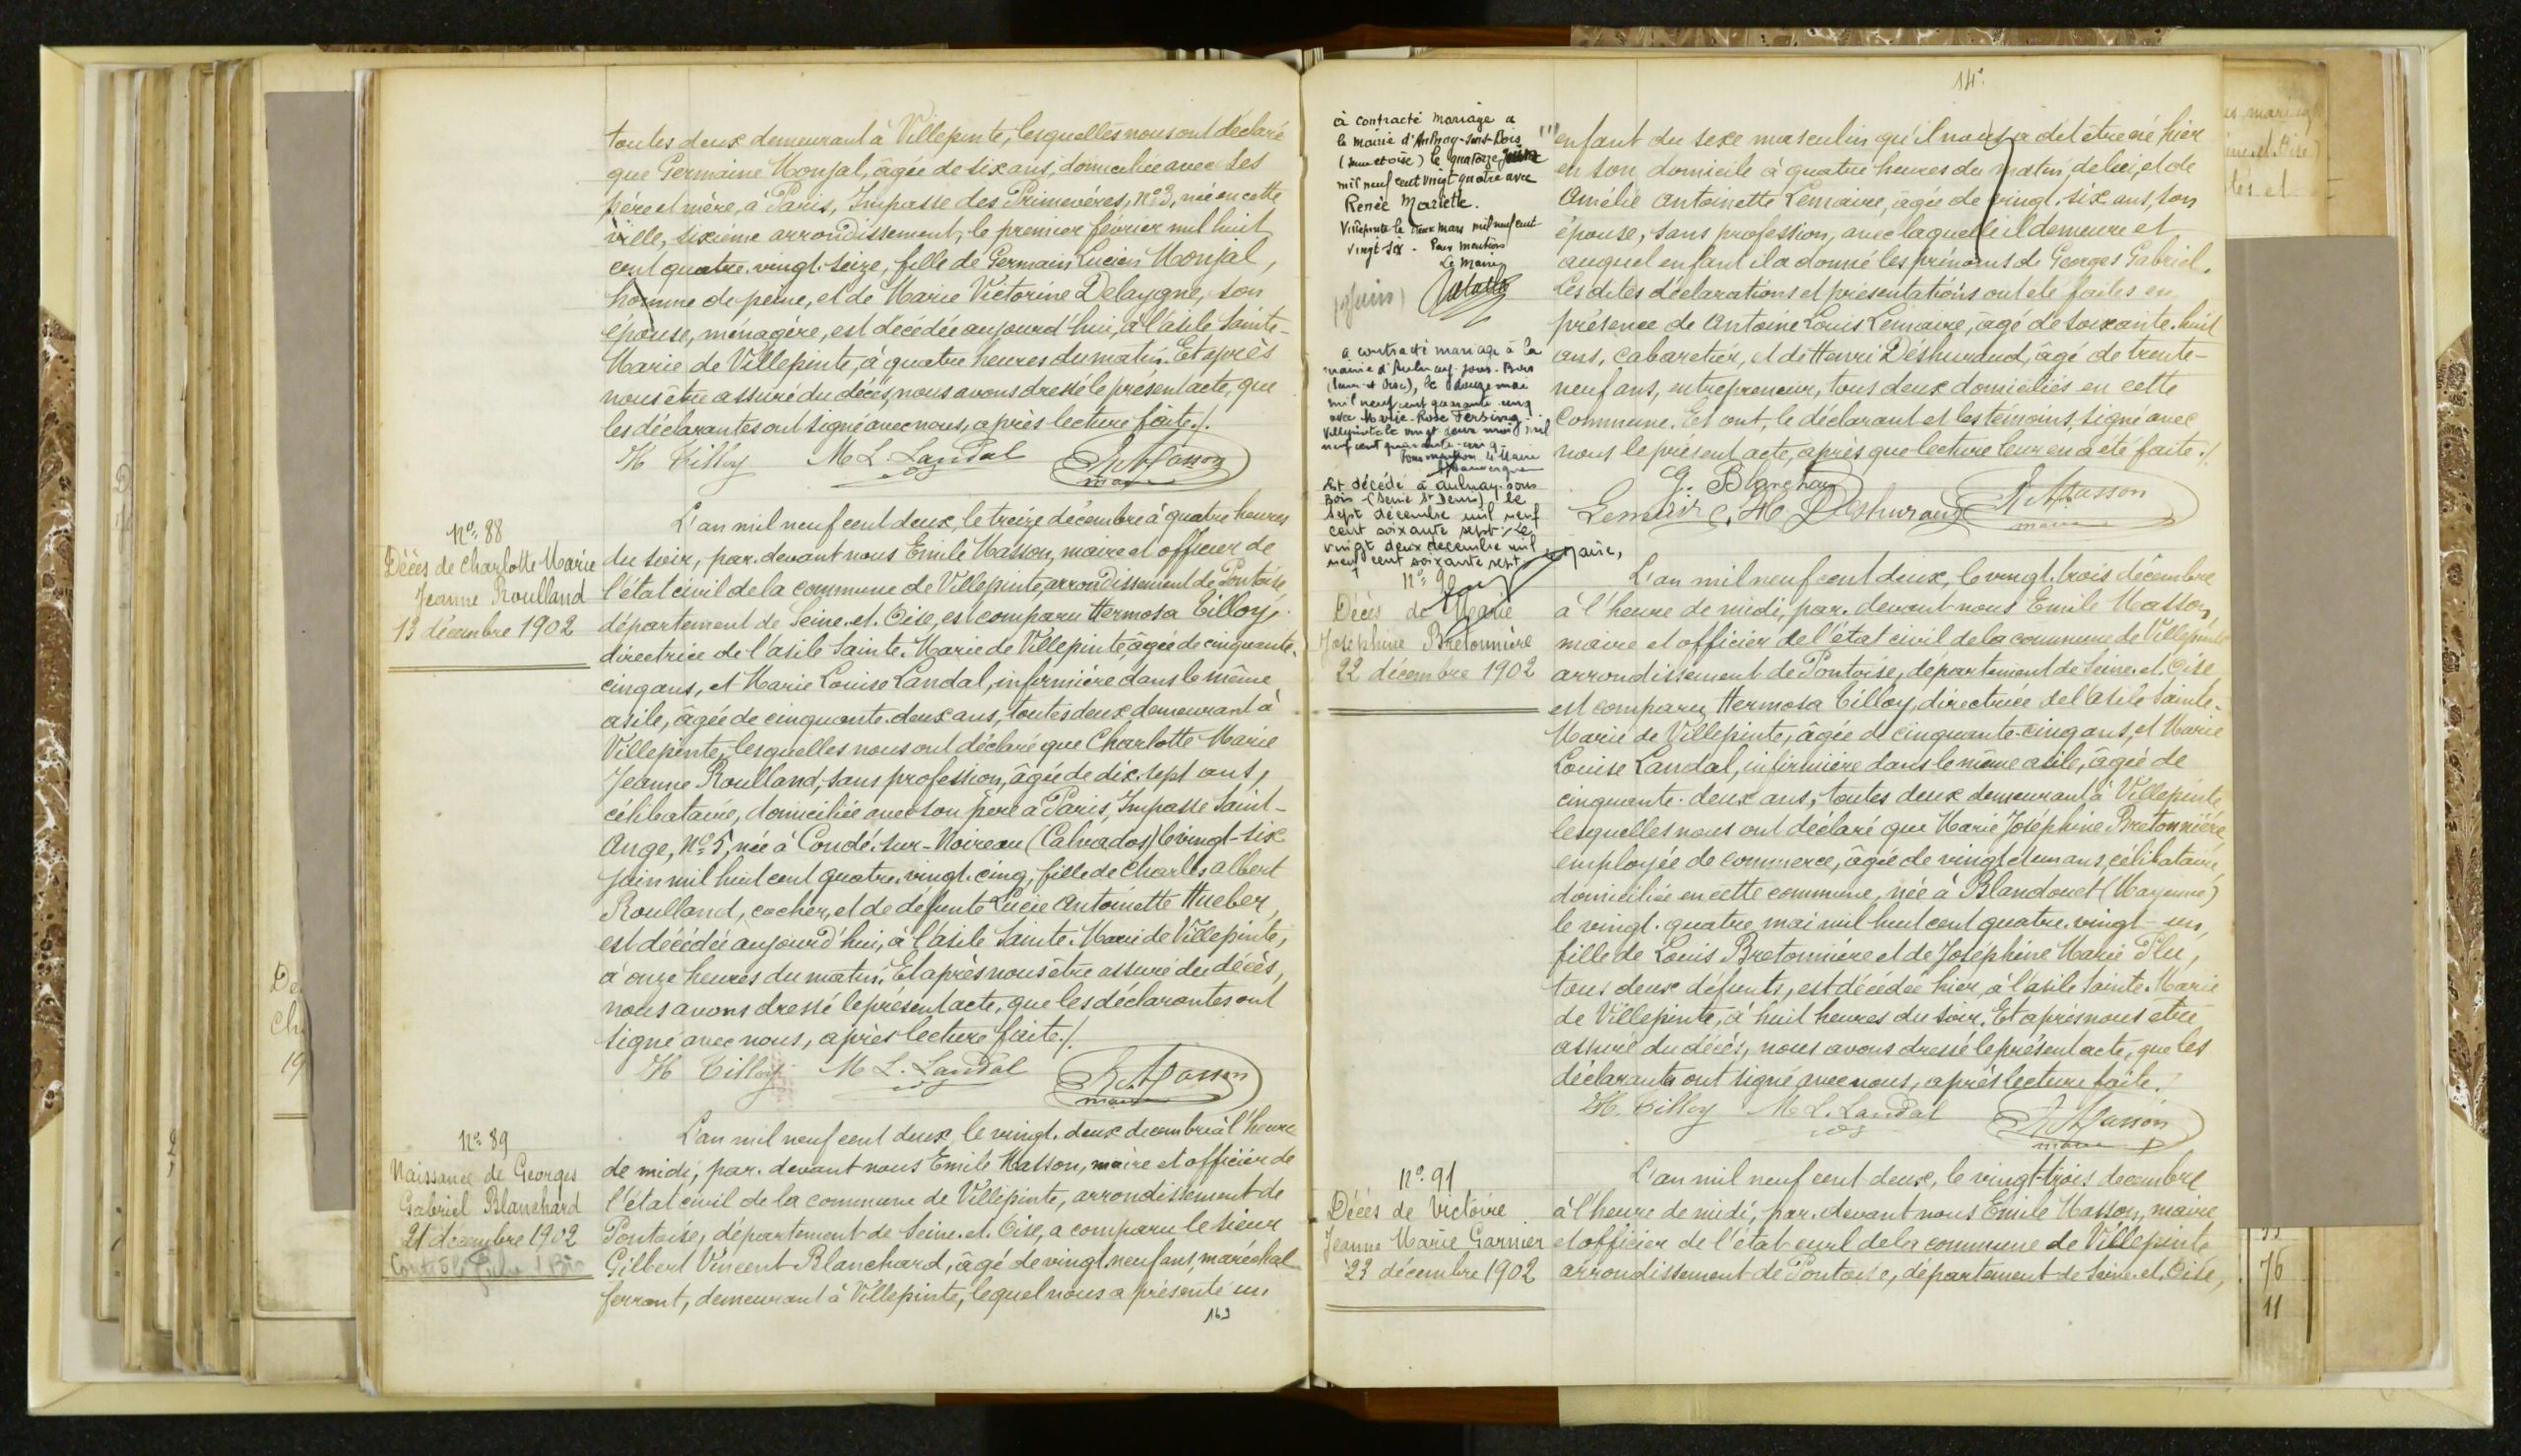 toutes deux demeurant à Villepinte, lesquelles nous ont déclaré
que Germaine Monjal, âgée de six ans, domiciliée avec ses
père et mère, à Paris, Impasse des Primevères, N° 3, née en cette
ville, sixième arrondissement, le premier février mil huit
cent quatre-vingt-seize, fille de Germain Lucien Monjal,
homme de peine, et de Marie Victorine Delaygne, son
épouse, ménagère, est décédée aujourd'hui, à l'asile Sainte-
Marie de Villepinte, à quatre heures du matin. Et après
nous être assuré du décès, nous avons dressé le présent acte, que
les déclarantes ont signé avec nous, après lecture faite./.
H Tilloy M L Landal E. Masson
maire
N° 88
Décès de Charlotte Marie
Jeanne Roulland
13 décembre 1902
L'an mil neuf cent deux, le treize décembre à quatre heures
du soir, par-devant nous Emile Masson, maire et officier de
l'état civil de la commune de Villepinte, arrondissement de Pontoise,
département de Seine-et-Oise, est comparu Hermosa Tilloy,
directrice de l'asile Sainte-Marie de Villepinte, âgée de cinquante-
cinq ans, et Marie Louise Landal, infirmière dans le même
asile, âgée de cinquante-deux ans, toutes deux demeurant à
Villepinte, lesquelles nous ont déclaré que Charlotte Marie
Jeanne Roulland, sans profession, âgée de dix-sept ans,
célibataire, domiciliée avec son père à Paris, Impasse Saint-
Ange, N° 5, née à Condé-sur-Noireau (Calvados) le vingt-six
juin mil huit cent quatre-vingt-cinq, fille de Charles Albert
Roulland, cocher, et de défunte Lucie Antoinette Hueber,
est décédée aujourd'hui, à l'asile Sainte-Marie de Villepinte,
à onze heures du matin. Et après nous être assuré du décès,
nous avons dressé le présent acte, que les déclarantes ont
signé avec nous, après lecture faite./.
H Tilloy M L. Landal E. Masson
maire
N° 89
Naissance de Georges
Gabriel Blanchard
21 décembre 1902
L'an mil neuf cent deux, le vingt-deux décembre à l'heure
de midi, par-devant nous Emile Masson, maire et officier de
l'état civil de la commune de Villepinte, arrondissement de
Pontoise, département de Seine-et-Oise, a comparu le sieur
Gilbert Vincent Blanchard, âgé de vingt-neuf ans, maréchal
ferrant, demeurant à Villepinte, lequel nous a présenté un
163
à contracté mariage a
la mairie d'Aulnay-sous-Bois
(Seine et oise) le quatorze
mil neuf cent vingt quatre avec
Renée Mariette.
Villepinte le deux mars mil neuf cent
vingt-six - Pour mention
Le Maire
(juin)
a contracté mariage à la
mairie d'Aulnay-sous-Bois
(Seine-et-Oise), le douze mai
mil neuf cent quarante-cinq
avec Marie-Rose Fersing.
Villepinte le vingt deux mai mil
neuf cent quarante-cinq-
Pour mention Le Maire
Est décédé à Aulnay-sous
Bois - (Seine St Denis) le
sept décembre mil neuf
cent soixante sept. Le
vingt deux décembre mil
neuf cent soixante sept
Le Maire,
14
enfant du sexe masculin qu'il nous a dit être né hier
en son domicile à quatre heures du matin, de lui, et de
Amélie Antoinette Lemaire, âgée de vingt-six ans, son
épouse, sans profession, avec laquelle il demeure et
auquel enfant il a donné les prénoms de Georges Gabriel.
Les dites déclarations et présentations ont été faites en
présence de Antoine Louis Lemaire, âgé de soixante-huit
ans, cabaretier, et de Henri Déshuraud, âgé de trente-
neuf ans, entrepreneur, tous deux domiciliés en cette
Commune. Et ont, le déclarant et les témoins, signé avec
nous le présent acte, après que lecture leur en a été faite./.
G. Blanchard
Lemaire. H Deshuraud E. Masson
maire
N° 90
Décès de Marie
Joséphine Bretonnière
22 décembre 1902
L'an mil neuf cent deux, le vingt-trois décembre
à l'heure de midi, par-devant nous Emile Masson,
maire et officier de l'état civil de la commune de Villepinte
arrondissement de Pontoise, département de Seine-et-Oise
est comparu Hermosa Tilloy, directrice de l'asile Sainte-
Marie de Villepinte, âgée de cinquante-cinq ans, et Marie
Louise Landal, infirmière dans le même asile, âgée de
cinquante-deux ans, toutes deux demeurant à Villepinte
lesquelles nous ont déclaré que Marie Joséphine Bretonnière
employée de commerce, âgée de vingt et un ans, célibataire,
domiciliée en cette commune, née à Blandouet (Mayenne)
le vingt-quatre mai mil huit cent quatre-vingt-un,
fille de Louis Bretonnière et de Joséphine Marie Plu,
tous deux défunts, est décédée hier, à l'asile Sainte-Marie
de Villepinte, à huit heures du soir. Et après nous être
assuré du décès, nous avons dressé le présent acte, que les
déclarantes ont signé avec nous, après lecture faite./.
H. Tilloy M L. Landal E. Masson
maire
N° 91
Décès de Victoire
Jeanne Marie Garnier
23 décembre 1902
L'an mil neuf cent deux, le vingt-trois décembre
à l'heure de midi, par-devant nous Emile Masson, maire
et officier de l'état civil de la commune de Villepinte
arrondissement de Pontoise, département de Seine-et-Oise,
76
11